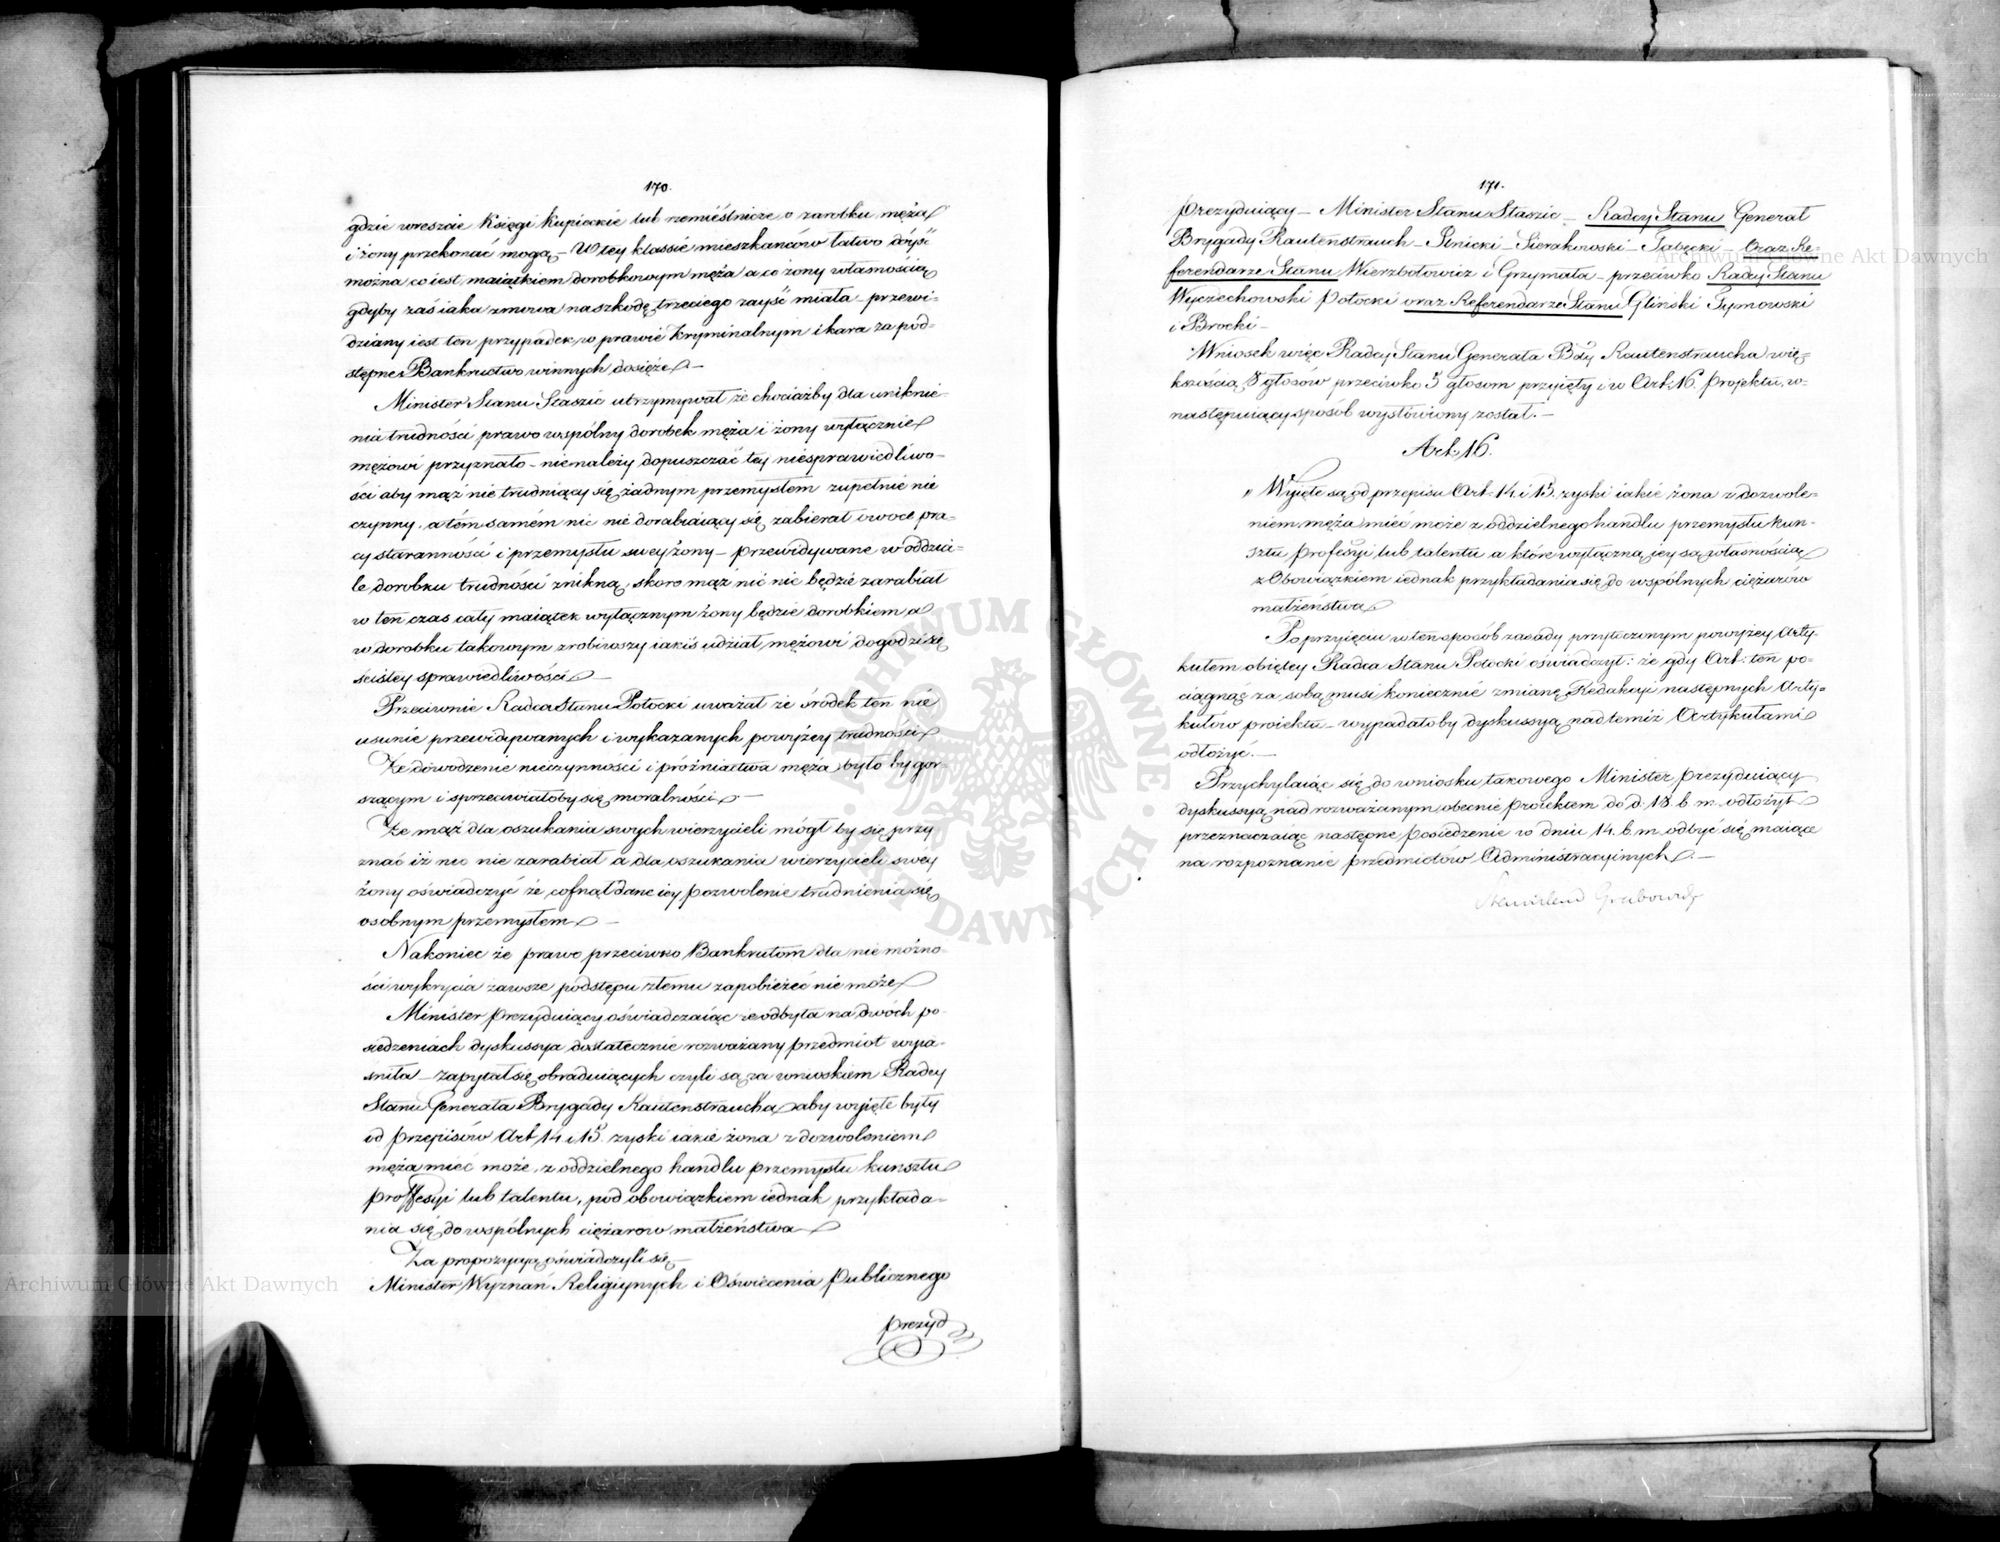 170.
gdzie wreszcie Księgi Kupieckie lub rzemieślnicze o zarobku męża
i żony przekonać mogą – W tey klassie mieszkańców łatwo doyść
można co iest maiątkiem dorobkowym męża a co żony własnością
gdyby zaś iaka zmowa na szkodę trzeciego zayść miała – przewi-
dziany iest ten przypadek w prawie kryminalnym i kara za pod-
stępne Bankructwo winnych dosięże –
Minister Stanu Staszic utrzymywał że chociażby dla uniknie-
nia trudności prawo wspólny dorobek męża i żony wyłącznie
mężowi przyznało – nienależy dopuszczać tey niesprawiedliwo-
ści aby mąż nie trudniący się żadnym przemysłem zupełnie nie
czynny, a tém samém nic nie dorabiaiący się zabierał owoce pra-
cy staranności i przemysłu swey żony – przewidywane w oddzia-
le dorobku trudności znikną, skoro mąż nic nie będzie zarabiał
w ten czas cały maiątek wyłącznym żony będzie dorobkiem a
w dorobku takowym zrobiwszy iakiś udział mężowi dogodzi się
ścisłey sprawiedliwości –
Przeciwnie Radca Stanu Potocki uważał że środek ten nie
usunie przewidywanych i wykazanych powyżey trudności
Że dowodzenie nieczynności i próżniactwa męża było by gor-
szącym i sprzeciwiałoby się moralności –
Że mąż dla oszukania swych wierzycieli mógł by się przy
znać iż nic nie zarabiał a dla oszukania wierzycieli swéy
żony oświadczyć że cofnął dane iey pozwolenie trudnienia się
osobnym przemysłem –
Nakoniec że prawo przeciwko Bankrutom dla niemożno-
ści wykrycia zawsze podstępu złemu zapobieżeć nie może
Minister Prezyduiący oświadczaiąc że odbyta na dwóch po-
siedzeniach dyskussya dostatecznie rozważany przedmiot wyia-
śniła – zapytał się obraduiących czyli są za wnioskiem Radcy
Stanu Generała Brygady Rautenstraucha aby wyięte były
od przepisów Art 14 i 15. zyski iakie żona z dozwoleniem
męża mieć może, z oddzielnego handlu przemysłu kunsztu
proffesyi lub talentu, pod obowiązkiem iednak przykłada-
nia się do wspólnych ciężarow małżeństwa
Za propozycyą oświadczyli się –
Minister Wyznań Religiynych i Oświecenia Publicznego
Prezyd
171.
Prezyduiący – Minister Stanu Staszic – Radcy Stanu Generał
Brygady Rautenstrauch – Linicki – Sierakowski – Tabęcki – Oraz Re-
ferendarze Stanu Wierzbołowicz i Grzymała – przeciwko Radcy Stanu
Wyczechowski Potocki oraz Referendarze Stanu Gliński Tymowski
i Brocki –
Wniosek więc Radcy Stanu Generała Bdy Rautenstraucha więk-
kszością 8 głosów przeciwko 5 głosom przyięty i w Art: 16. Projektu, w-
następuiący sposób wysłowiony został. –
Art: 16.
„ Wyięte są od przepisu Art: 14. i 15. zyski iakie żona z dozwole-
niem męża mieć może z oddzielnego handlu przemysłu kun-
sztu Profesyi lub talentu a które wyłączną iey są własnością
z Obowiązkiem iednak przykładania się do wspólnych ciężarów
małżeństwa
Po przyięciu w ten sposób zasady przytoczonym powyżey Arty-
kułem obiętey Radca Stanu Potocki oświadczył: że gdy Art: ten po-
ciągnąć za sobą musi koniecznie zmianę Redakcyi następnych Arty-
kułów proiektu – wypadałoby dyskussyą nad temiż Artykułami
odłożyć. –
Przychylaiąc się do wniosku takowego Minister Prezyduiący
dyskussyą nad rozważanym obecnie Proiektem do d. 18. b. m. odłożył
przeznaczaiąc następne Posiedzenie w dniu 14. b. m. odbyć się maiące
na rozpoznanie przedmiotów Administracyinych –
Stanisław Grabowski
ARCHIWUM GŁÓWNE AKT DAWNYCH
Archiwum Główne Akt Dawnych
Archiwum Główne Akt Dawnych